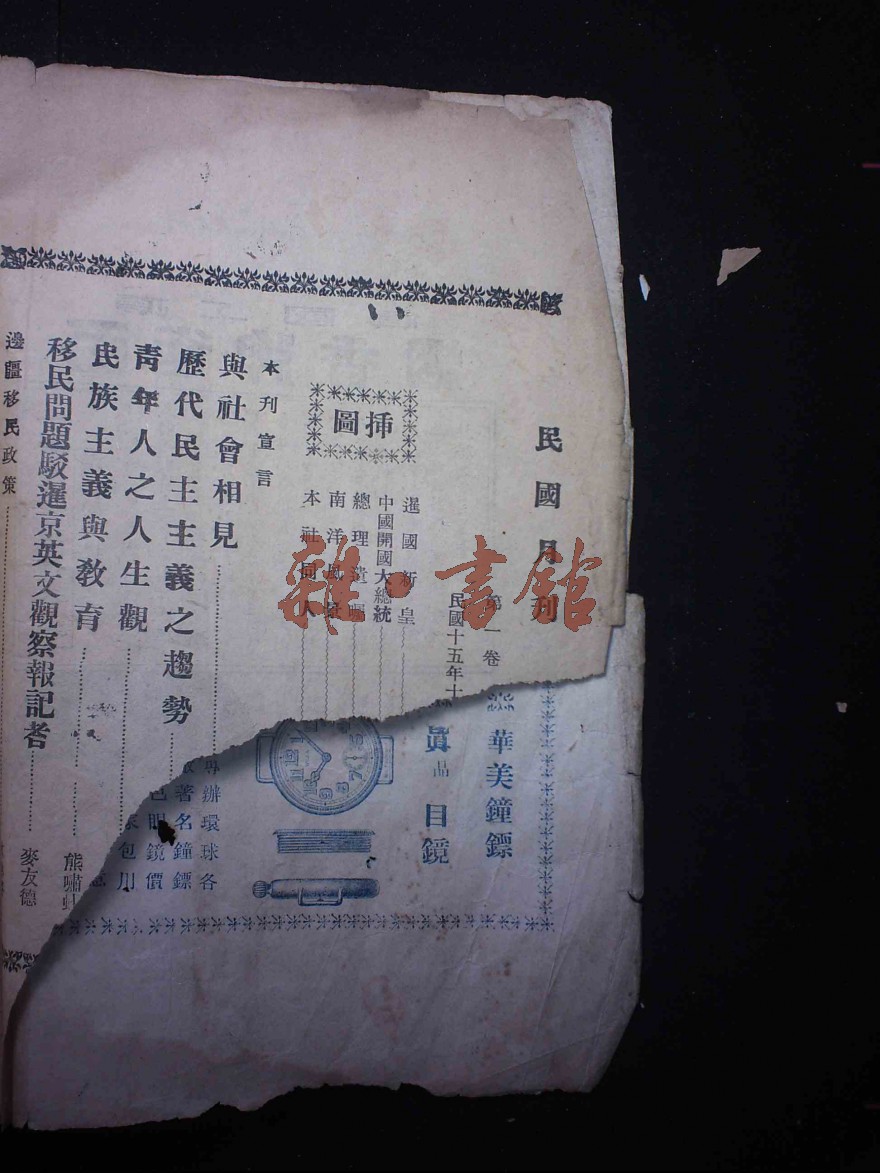 民國月刋
第一卷
民國十五年十
挿圖
暹國新皇
中國開國大總統
總理遺囑
南洋風景
本社同人
本刋宣言
與社會相見
歷代民主主義之趨勢
靑年人之人生觀
民族主義與敎育
移民問題駁暹京英文觀察報記者
熊嘯
邊疆移民政策
麥友德
華美鐘鏢
品目鏡
專辦環球各
著名鐘鏢
色眼鏡價
包用
雜·書館